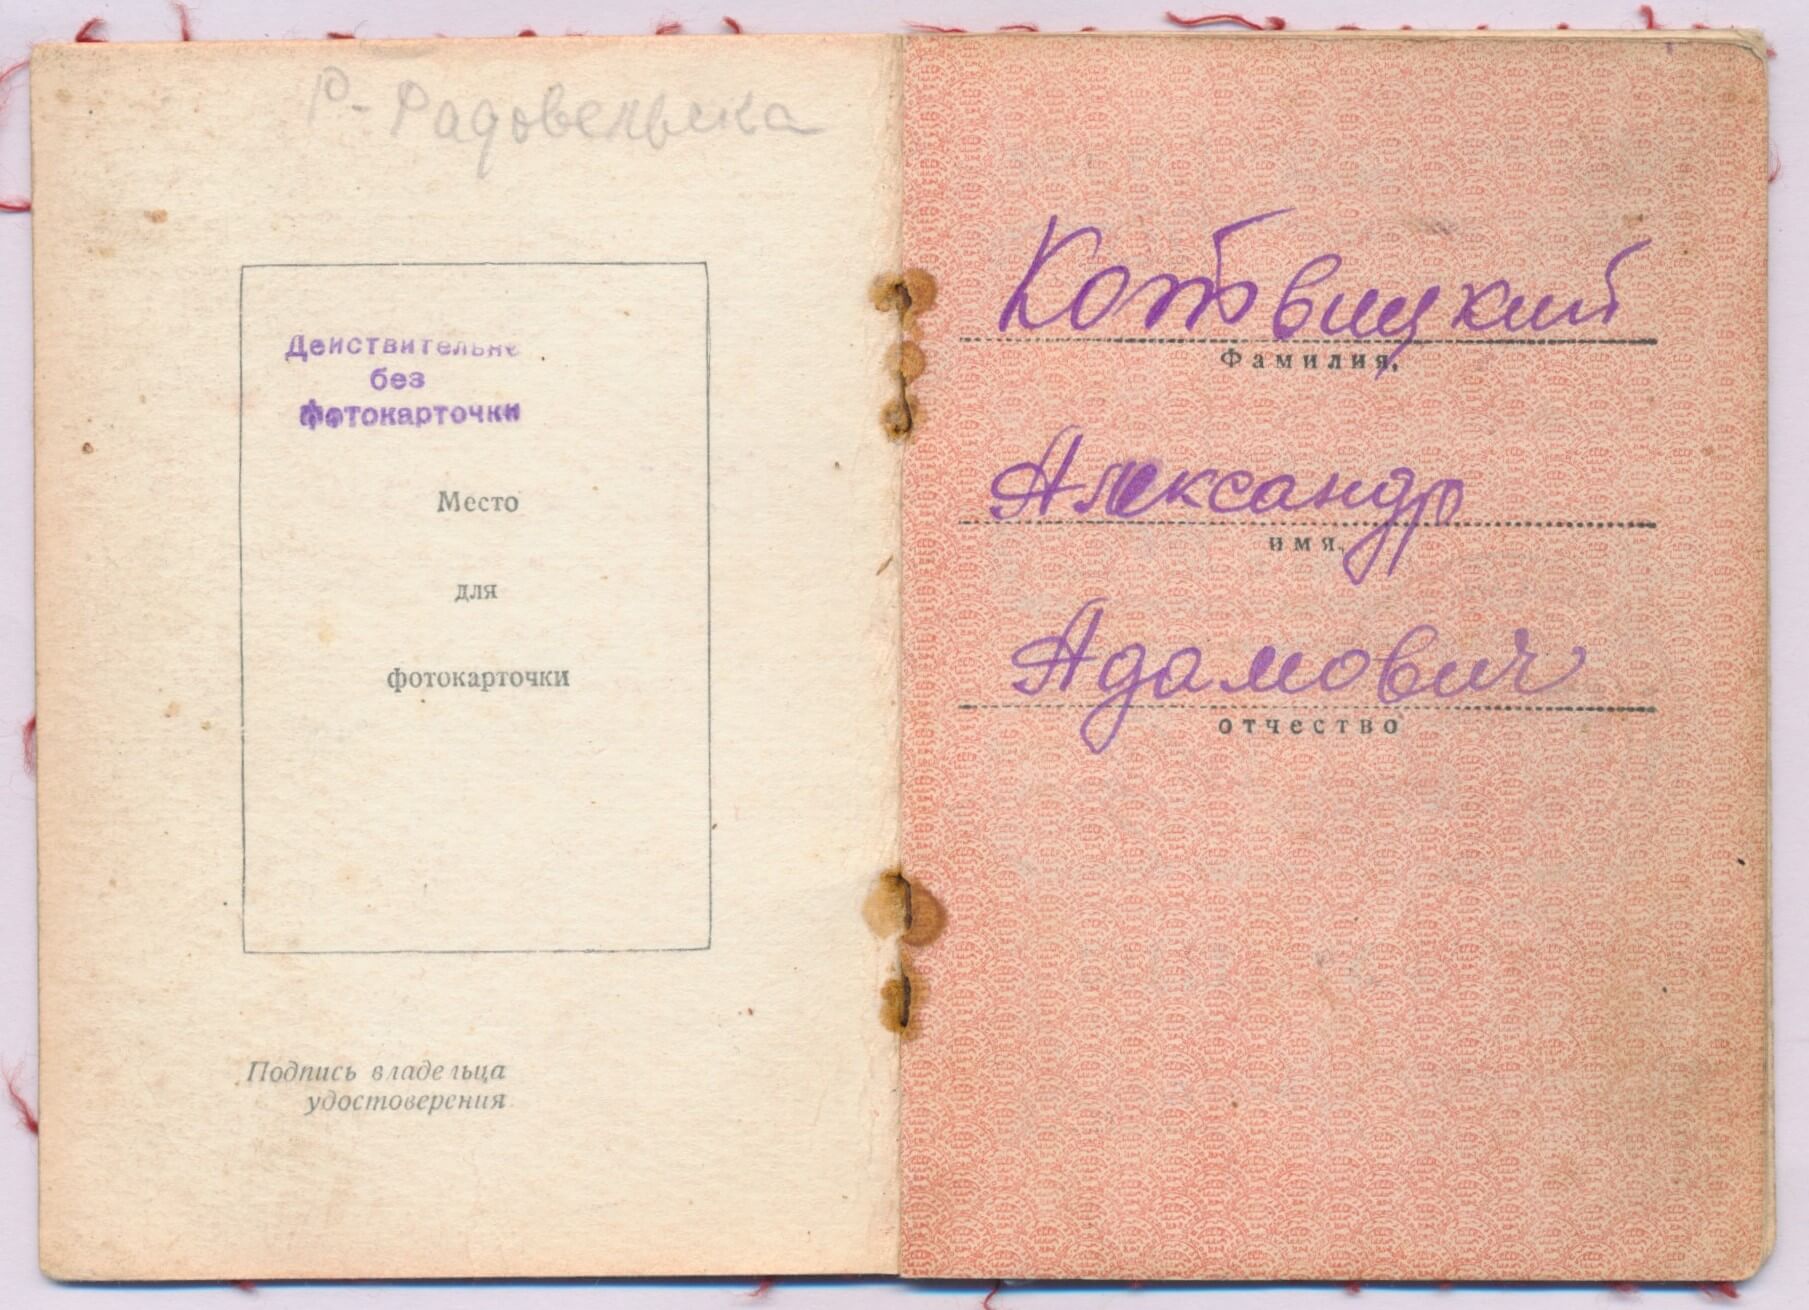 Р-Радовельска
Действительно
без
фотокарточки
Место
для
фотокарточки
Подпись владельца
удостоверения
Котвицкий
Фамилия,
Александр
имя,
Адамович
отчество